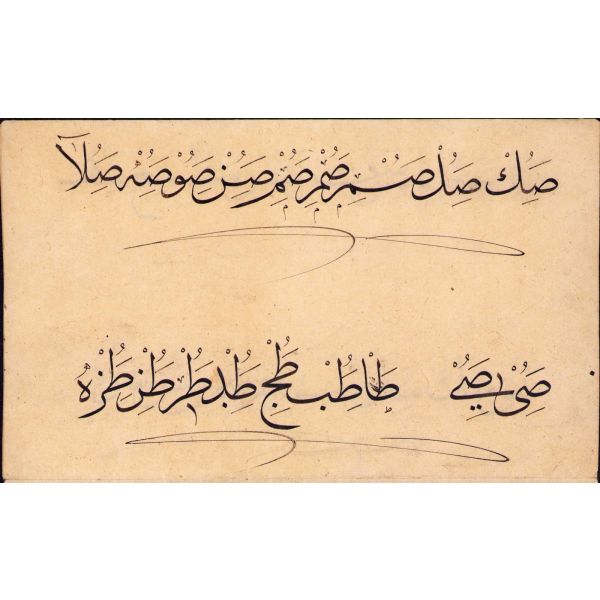 صُكْ صُلْ صُمْ صُمْ صُمْ صُنْ صُوْ صُهْ صُلَا
صُىْ صُےْ طَا طُبْ طُجْ طُدْ طُرْ